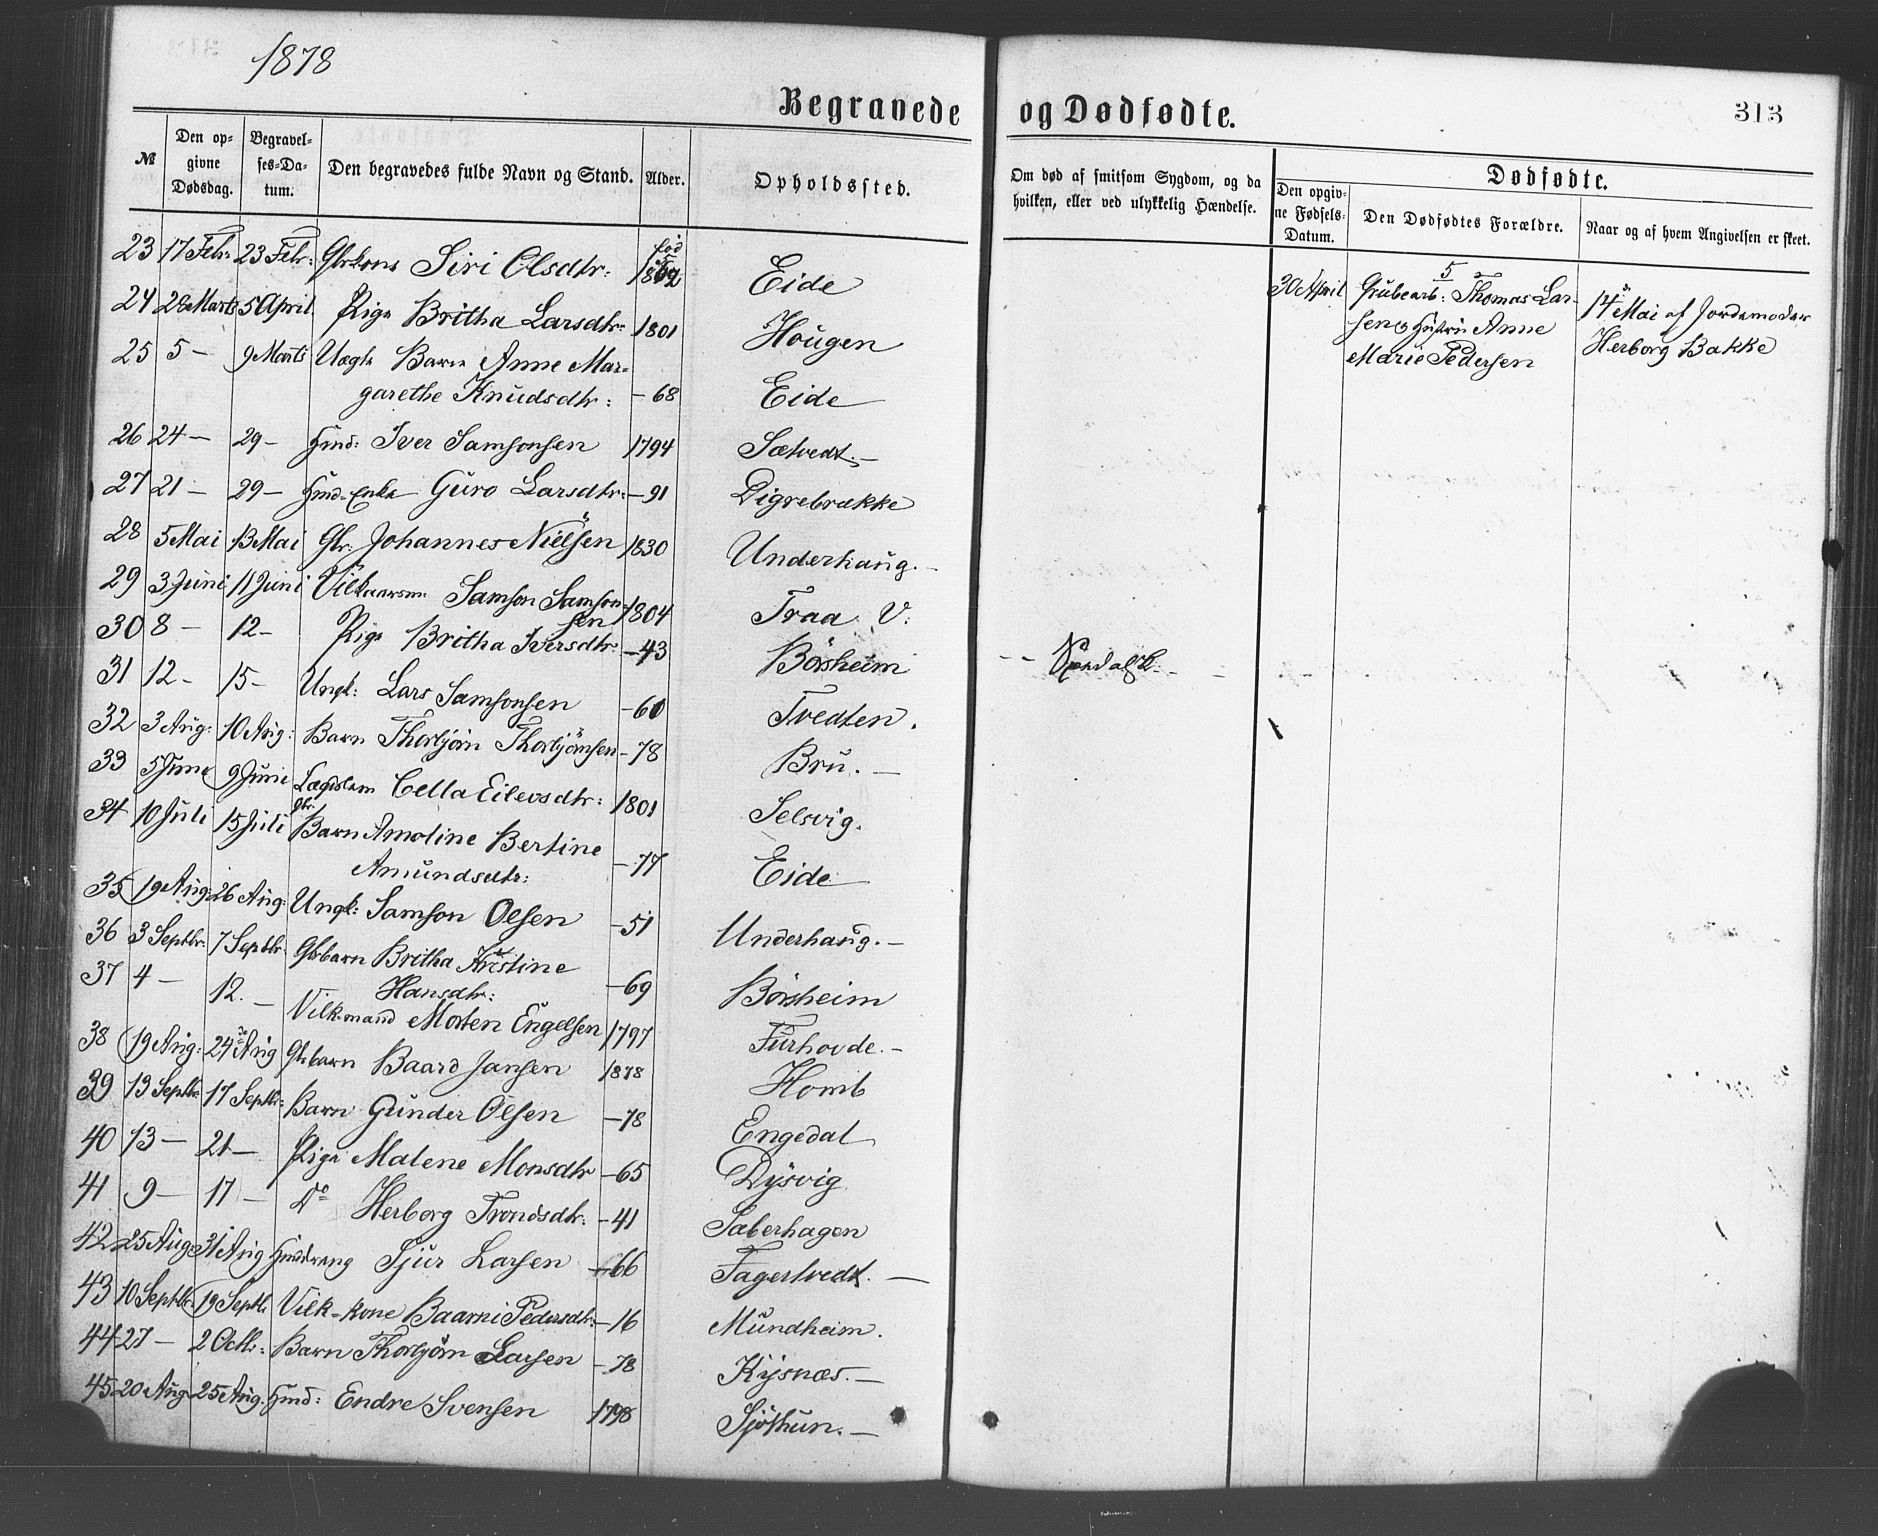 1878
Begravede og Dødfødte.
313
№ Den opgivne Dødsdag. Begravelses-Datum. Den begravedes fulde Navn og Stand. Alder. Opholdssted. Om død af smitsom Sygdom, og da hvilken, eller ved ulykkelig Hændelse.
Dødfødte.
Den opgivne Fødsels-Datum. Den Dødfødtes Forældre. Naar og af hvem Angivelsen er skeet.
23 17 Febr: 23 Febr: Gbrkons Siri Olsdtr: fød Eide
24 28 Marts 5 April Pige Britha Larsdtr: 1801 Hougen
25 5 — 9 Marts Uægte Barn Anne Mar-
garethe Knudsdtr: — 68 Eide
26 24 — 29 — Hmd: Iver Samsonsen 1794 Sætvedt. —
27 21 — 29 — Hmd-Enke Guro Larsdtr: — 91 Digrebrække
28 5 Mai 13 Mai Gbr: Johannes Nielsen 1830 Underhaug. —
29 3 Juni 11 Juni Vilkaarsm: Samson Samson-
sen 1804 Traa V:
30 8 — 12 — Pige Britha Iversdtr: — 43 Börsheim — Spedalsk. —
31 12 — 15 — Ungk: Lars Samsonsen — 60 Tvedten.
32 3 Aug: 10 Aug: Barn Thorbjörn Thorbjörnsen — 78 Bru. —
33 5 June 9 Juni Lægdslem Cella Eilevsdtr: 1801 Selsvig.
34 10 Juli 15 Juli Gbr. Barn Amoline Bertine
Amundsdtr: — 77 Eide
35 19 Aug: 26 Aug: Ungk: Samson Olsen — 51 Underhaug. —
36 3 Septbr. 7 Septbr. Gbrbarn Britha Kristine
Hansdtr: — 69 Börsheim
37 4 — 12. — Vilk-mand Morten Engelsen 1797 Furhovde. —
38 19 Aug: 24de Aug Gbrbarn Baard Jansen 1878 Homb
39 13 Septbr 17 Septbr: Barn Gunder Olsen — 78 Engedal
40 13 — 21 — Pige Malene Monsdtr — 65 Dysvig
41 9 — 17 — Do Herborg Trondsdtr: — 41 Saberhagen
42 25 Aug: 31 Aug Hmddreng Sjur Larsen — 66 Fagertvedt. —
43 10 Septbr. 19 Septbr Vilk-kone Baarni Pedersdtr: — 16 Mundheim.
44 27 — 2 Octb: Barn Thorbjörn Larsen — 78 Kysnæs. —
45 20 Aug 25 Aug. Hmd: Endre Svensen 1798 Sjöthun. —
5
30 April Grubearb: Thomas Lar-
sen og Hustru Anne
Marie Pedersen
14de Mai af Jordemoder
Herborg Bakke